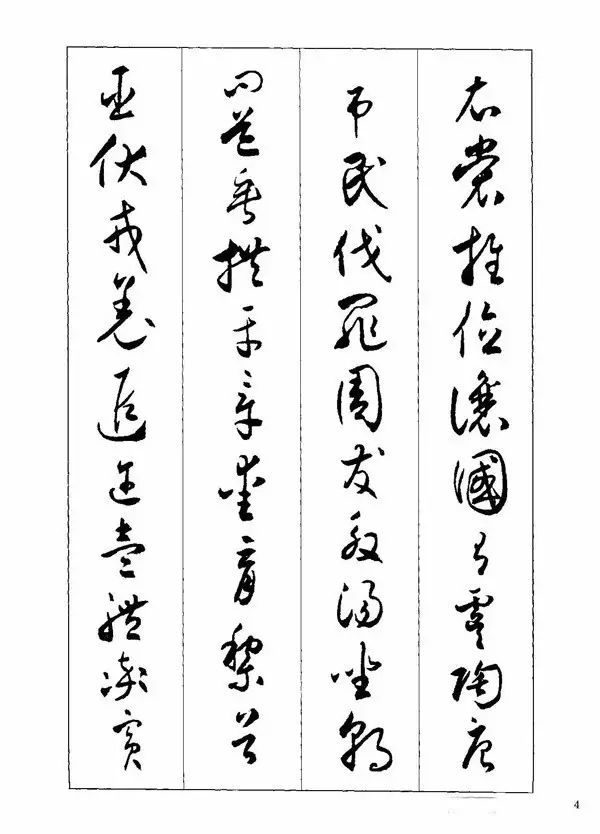 衣裳推位讓國有虞陶唐
弔民伐罪周發殷湯坐朝
問道垂拱平章愛育黎首
臣伏戎羌遐迩壹體率賓
4